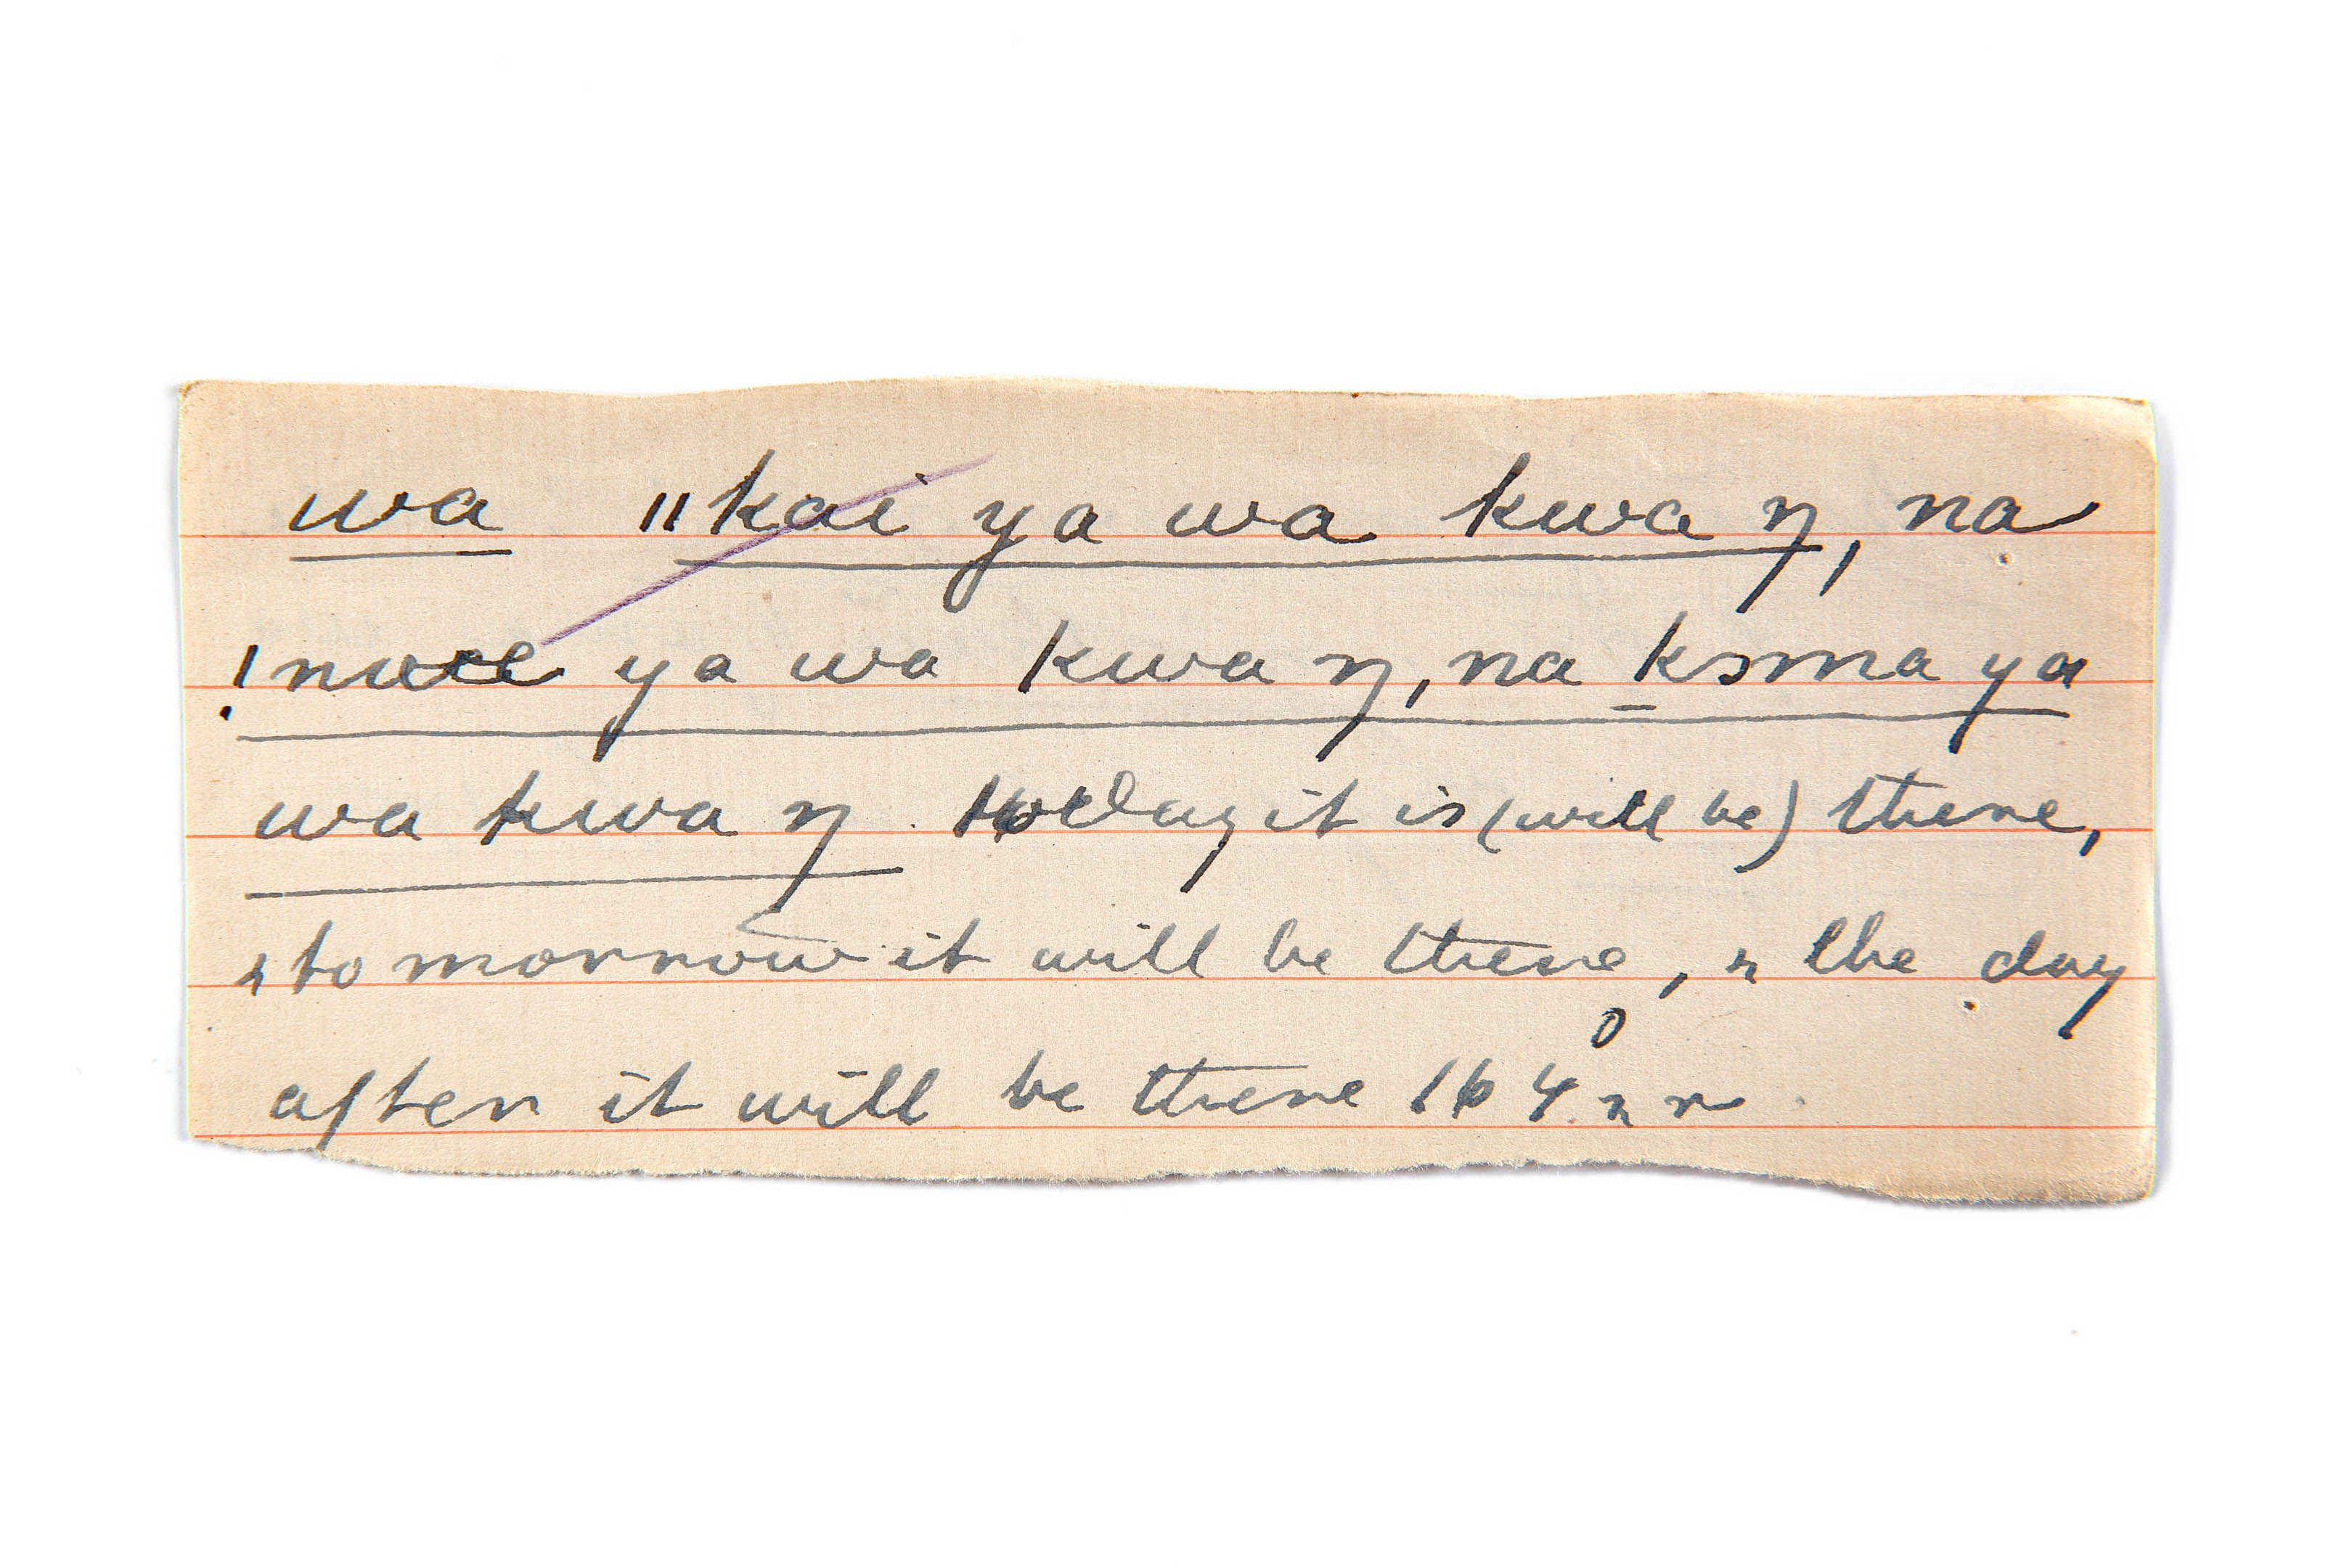 wa ǁkai ya wa kwa ŋ, na
!nuee ya wa kwa ŋ, na ksma ya
wa kwa ŋ. today it is (will be) there,
& tomorrow it will be there, & the day
after it will be there 164